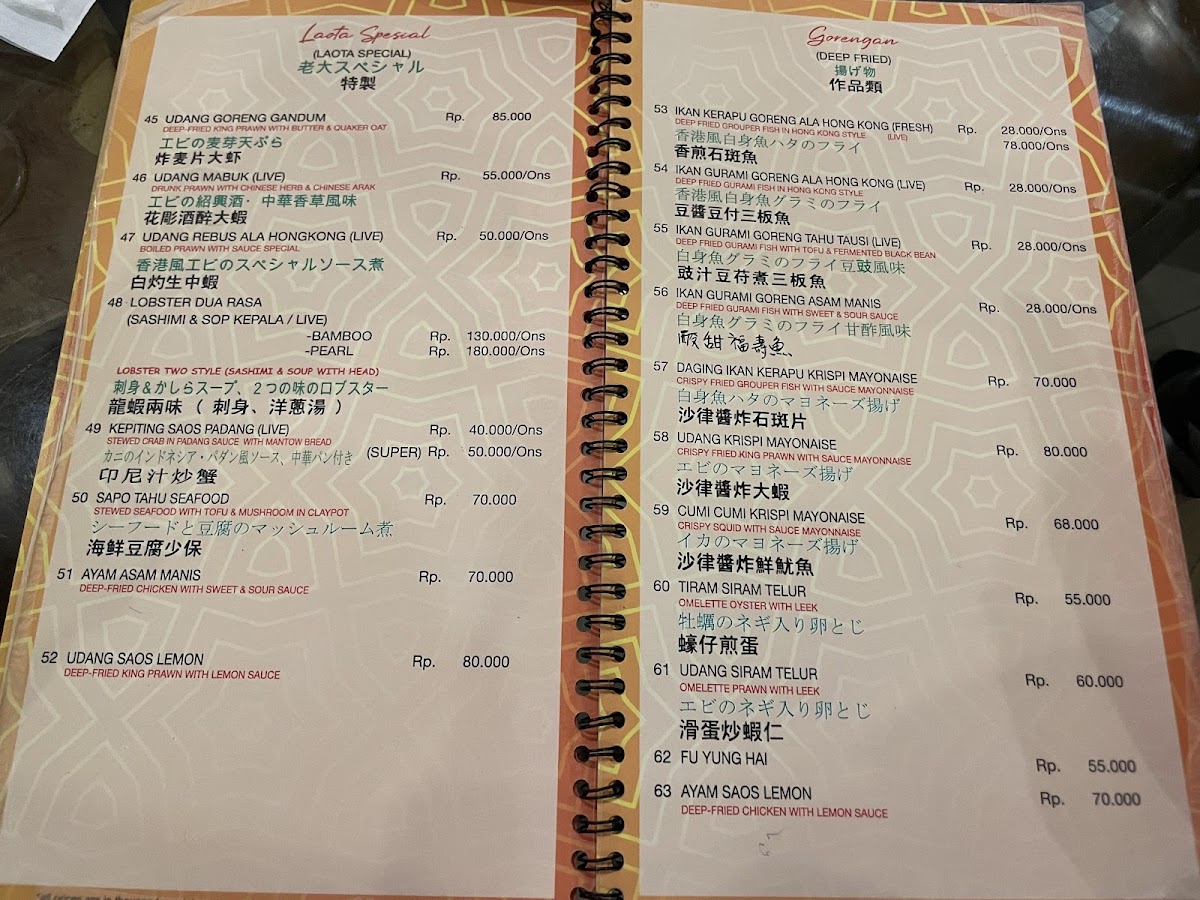 Laota Spesial
(LAOTA SPECIAL)
老大スペシャル
特製
45 UDANG GORENG GANDUM Rp. 85.000
DEEP-FRIED KING PRAWN WITH BUTTER & QUAKER OAT
エビの麦芽天ぷら
炸麦片大虾
46 UDANG MABUK (LIVE) Rp. 55.000/Ons
DRUNK PRAWN WITH CHINESE HERB & CHINESE ARAK
エビの紹興酒・中華香草風味
花彫酒醉大蝦
47 UDANG REBUS ALA HONGKONG (LIVE) Rp. 50.000/Ons
BOILED PRAWN WITH SAUCE SPECIAL
香港風エビのスペシャルソース煮
白灼生中蝦
48 LOBSTER DUA RASA
(SASHIMI & SOP KEPALA / LIVE)
-BAMBOO Rp. 130.000/Ons
-PEARL Rp. 180.000/Ons
LOBSTER TWO STYLE (SASHIMI & SOUP WITH HEAD)
刺身&かしらスープ、2つの味のロブスター
龍蝦兩味 ( 刺身、洋蔥湯 )
49 KEPITING SAOS PADANG (LIVE) Rp. 40.000/Ons
STEWED CRAB IN PADANG SAUCE WITH MANTOW BREAD
カニのインドネシア・パダン風ソース、中華パン付き (SUPER) Rp. 50.000/Ons
印尼汁炒蟹
50 SAPO TAHU SEAFOOD Rp. 70.000
STEWED SEAFOOD WITH TOFU & MUSHROOM IN CLAYPOT
シーフードと豆腐のマッシュルーム煮
海鲜豆腐少保
51 AYAM ASAM MANIS Rp. 70.000
DEEP-FRIED CHICKEN WITH SWEET & SOUR SAUCE
52 UDANG SAOS LEMON Rp. 80.000
DEEP-FRIED KING PRAWN WITH LEMON SAUCE
Gorengan
(DEEP FRIED)
揚げ物
作品類
53 IKAN KERAPU GORENG ALA HONG KONG (FRESH) Rp. 28.000/Ons
DEEP FRIED GROUPER FISH IN HONG KONG STYLE (LIVE) 78.000/Ons
香港風白身魚ハタのフライ
香煎石斑魚
54 IKAN GURAMI GORENG ALA HONG KONG (LIVE) Rp. 28.000/Ons
DEEP FRIED GURAMI FISH IN HONG KONG STYLE
香港風白身魚グラミのフライ
豆醬豆付三板魚
55 IKAN GURAMI GORENG TAHU TAUSI (LIVE) Rp. 28.000/Ons
DEEP FRIED GURAMI FISH WITH TOFU & FERMENTED BLACK BEAN
白身魚グラミのフライ豆豉風味
豉汁豆苻煮三板魚
56 IKAN GURAMI GORENG ASAM MANIS Rp. 28.000/Ons
DEEP FRIED GURAMI FISH WITH SWEET & SOUR SAUCE
白身魚グラミのフライ甘酢風味
酸甜福寿魚
57 DAGING IKAN KERAPU KRISPI MAYONAISE Rp. 70.000
CRISPY FRIED GROUPER FISH WITH SAUCE MAYONNAISE
白身魚ハタのマヨネーズ揚げ
沙律醬炸石斑片
58 UDANG KRISPI MAYONAISE Rp. 80.000
CRISPY FRIED KING PRAWN WITH SAUCE MAYONNAISE
エビのマヨネーズ揚げ
沙律醬炸大蝦
59 CUMI CUMI KRISPI MAYONAISE Rp. 68.000
CRISPY SQUID WITH SAUCE MAYONNAISE
イカのマヨネーズ揚げ
沙律醬炸鮮魷魚
60 TIRAM SIRAM TELUR Rp. 55.000
OMELETTE OYSTER WITH LEEK
牡蠣のネギ入り卵とじ
蠔仔煎蛋
61 UDANG SIRAM TELUR Rp. 60.000
OMELETTE PRAWN WITH LEEK
エビのネギ入り卵とじ
滑蛋炒蝦仁
62 FU YUNG HAI Rp. 55.000
63 AYAM SAOS LEMON Rp. 70.000
DEEP-FRIED CHICKEN WITH LEMON SAUCE